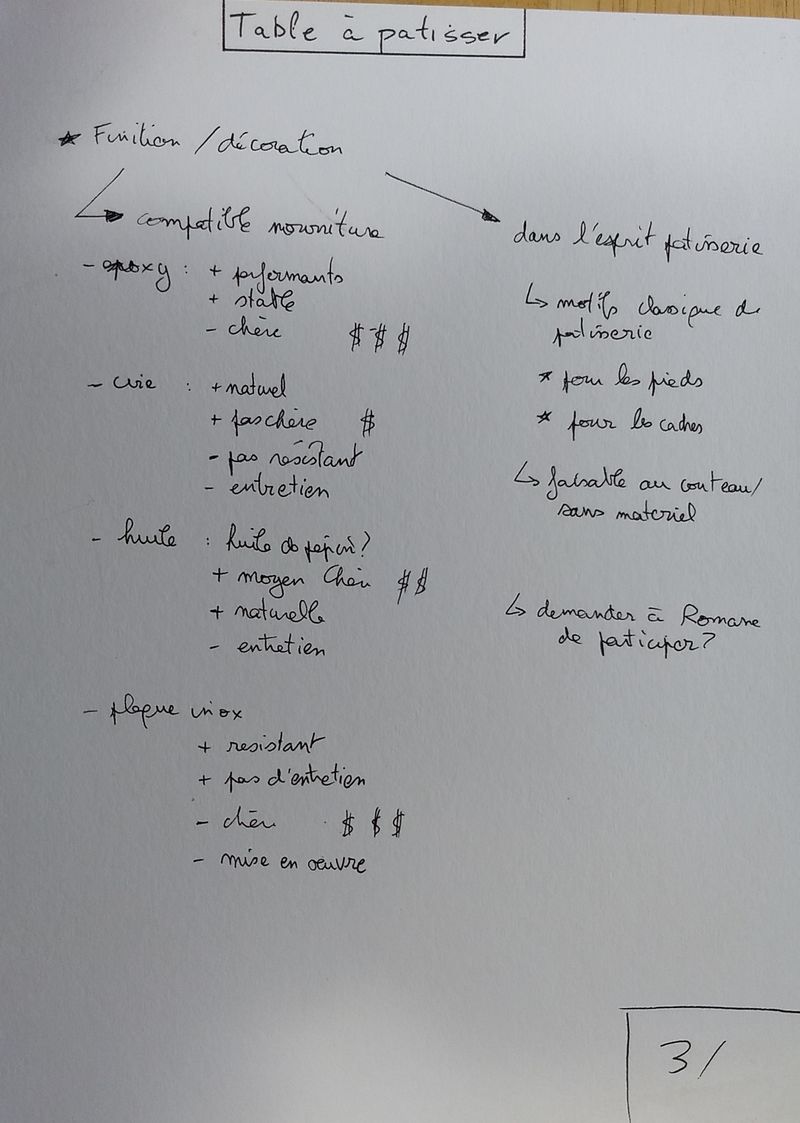 Table à patisser
* Finition / décoration
compatible nourriture
- epoxy : + performants
+ stable
- chère $ $ $
- cire : + naturel
+ pas chère $
- pas résistant
- entretien
- huile : huile de pépin ?
+ moyen chère $$
+ naturelle
- entretien
- plaque inox
+ resistant
+ pas d'entretien
- chère $ $ $
- mise en oeuvre
dans l'esprit patisserie
↳ motifs classique de
patisserie
* pour les pieds
* pour les cadres
↳ faisable au couteau/
sans materiel
↳ demander à Romane
de participer ?
3/